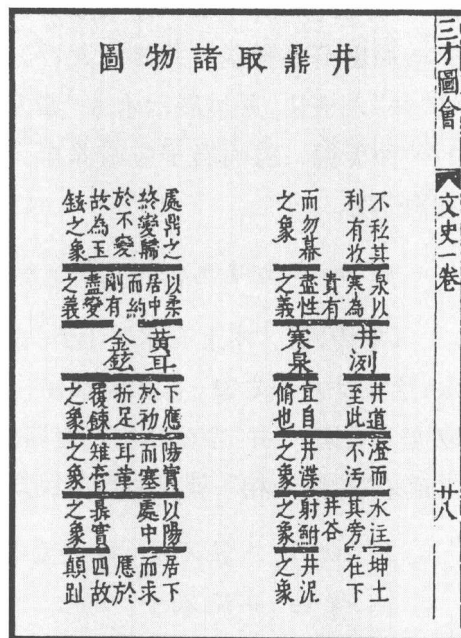 三才圖會
文史一卷
廿八
井鼎取諸物圖
不私其
利有收
而勿幕
之象
泉以
寒為
貴有
盡性
之義
井洌
寒泉
井道
至此
宜自
脩也
澄而
不污
井渫
之象
水注
其旁
井谷
射鮒
之象
坤土
在下
井泥
之象
處鼎之
終變
於不變
故為玉
鉉之象
以柔
居中
而納
剛有
盡變
之義
黃耳
金鉉
下應
於初
折足
覆餗
之象
陽實
而塞
耳革
雉膏
之象
以陽
處中
鼎實
之象
居下
而求
應於
四故
顛趾